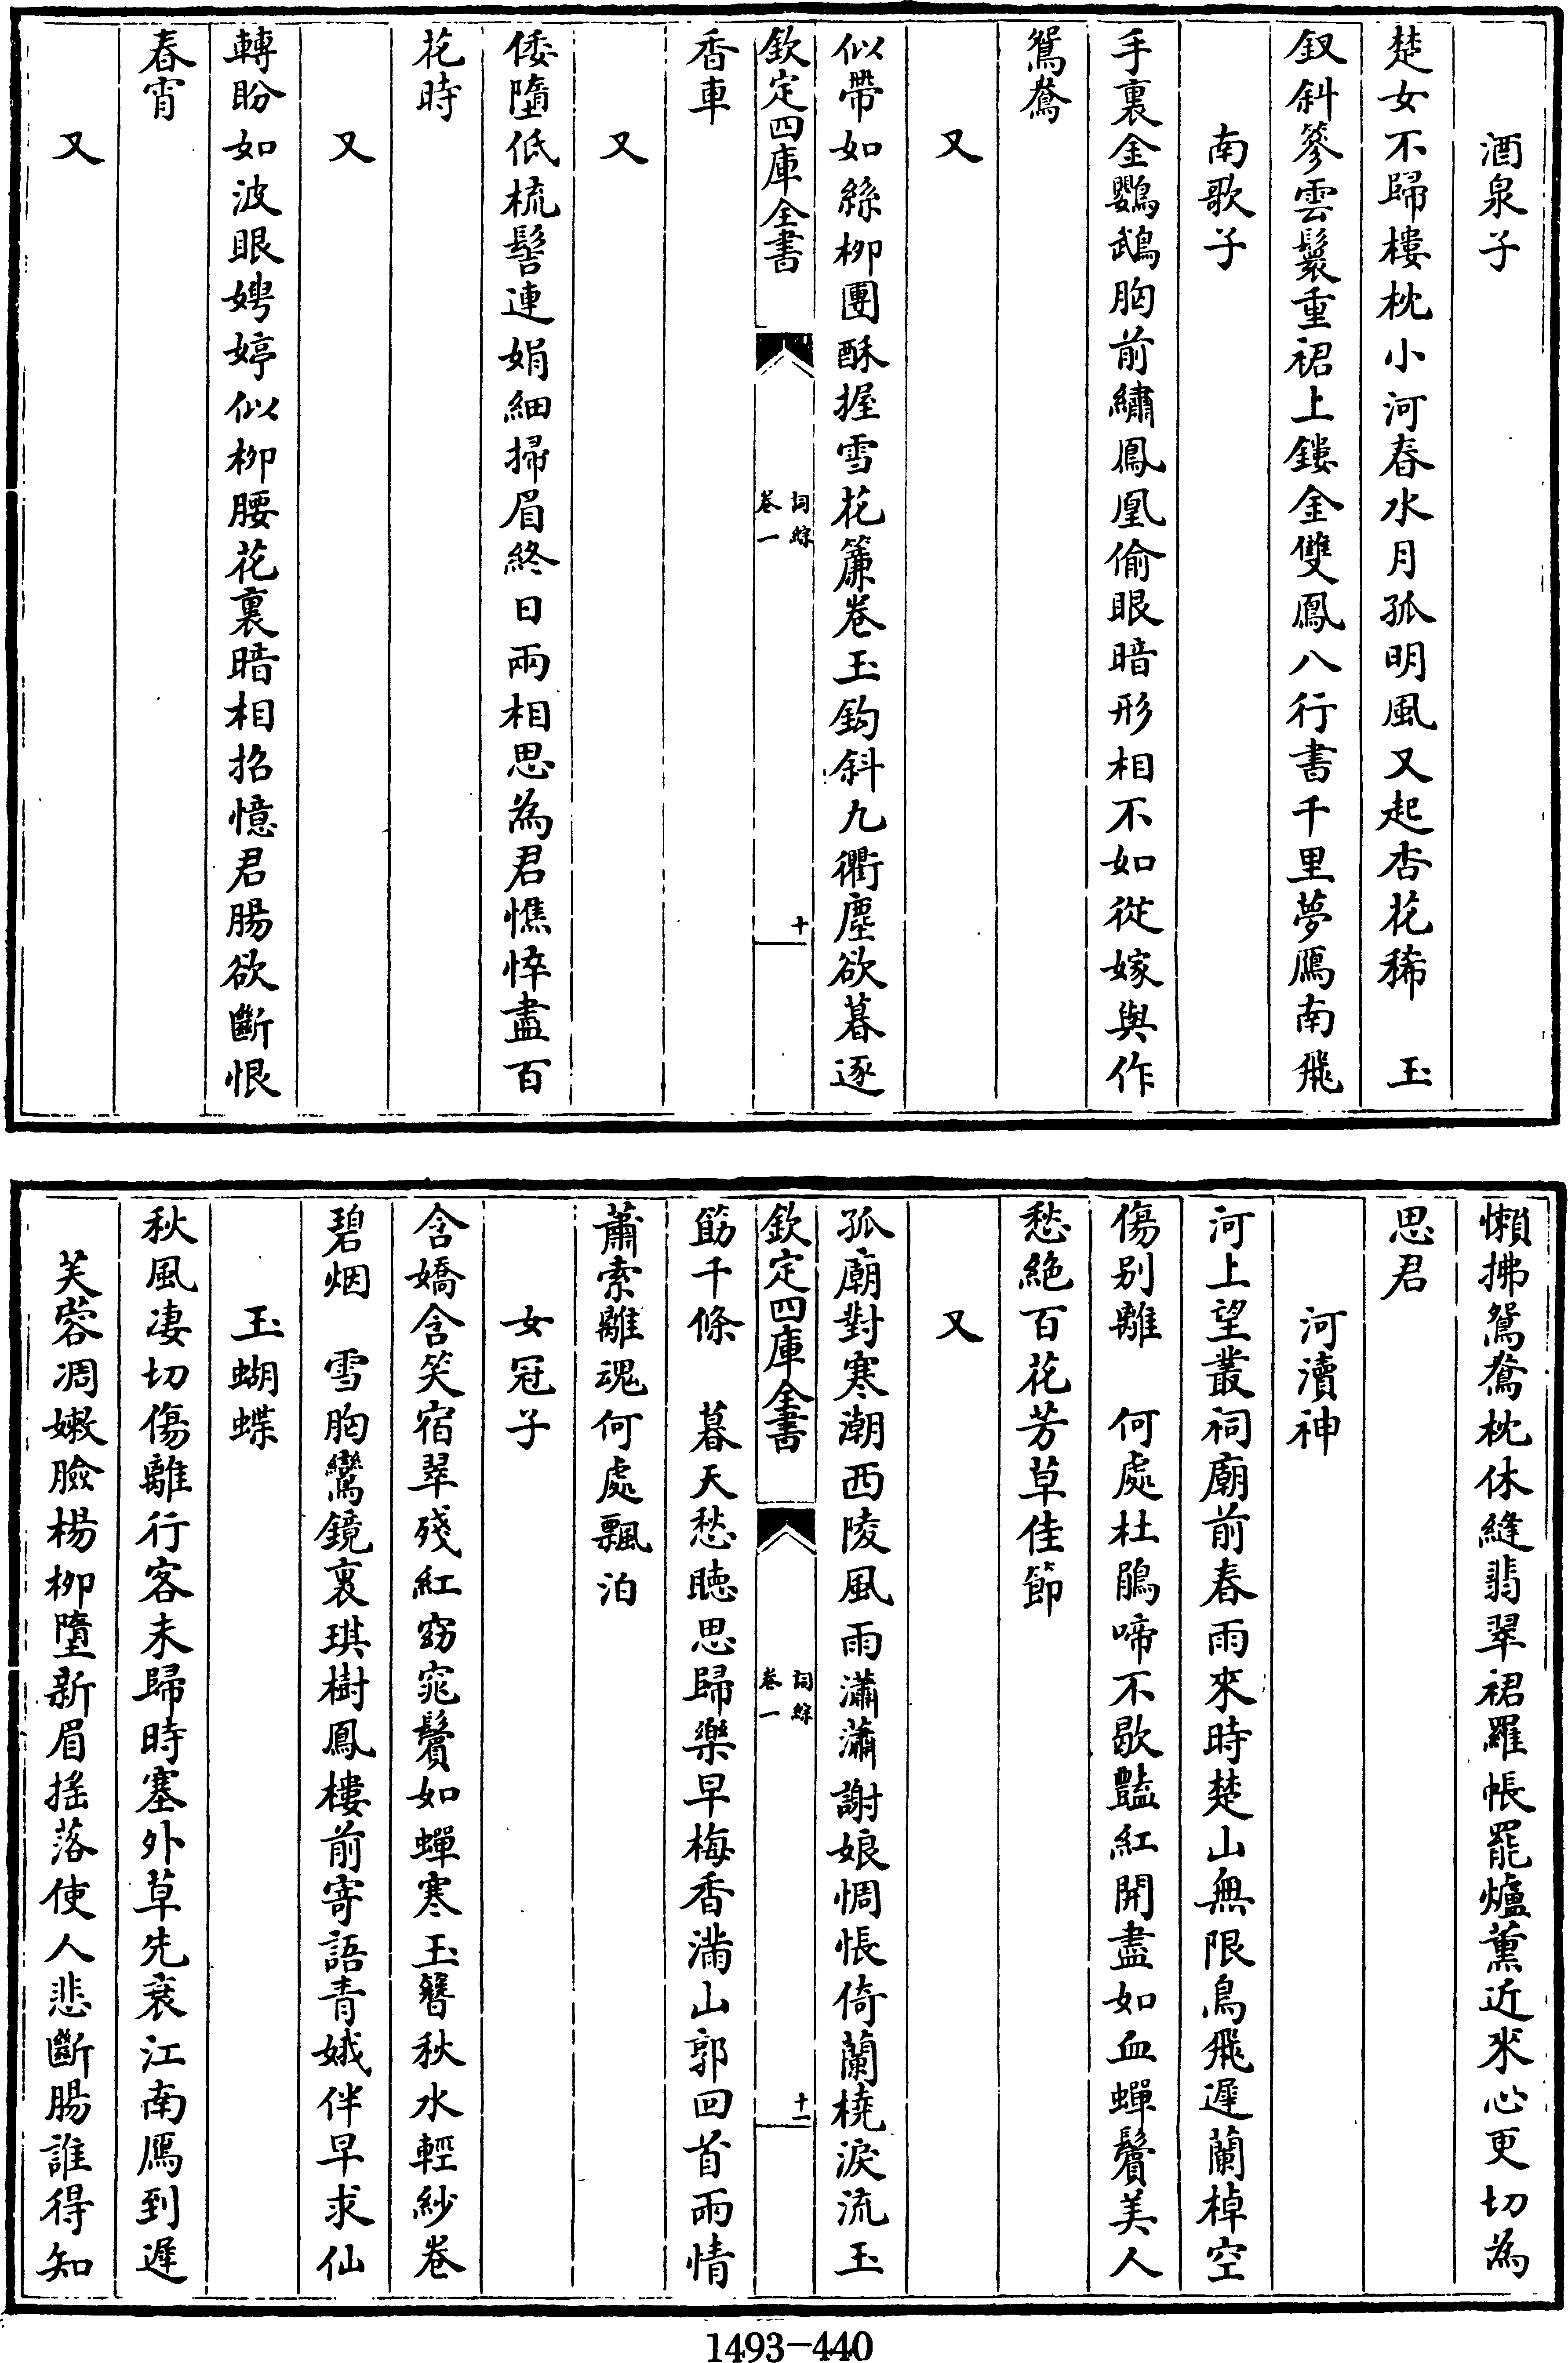 酒泉子
楚女不歸樓枕小河春水月孤明風又起杏花稀　玉
釵斜篸雲鬟重裙上鏤金雙鳳八行書千里夢鴈南飛
南歌子
手裏金鸚鵡胸前繡鳳凰偷眼暗形相不如從嫁與作
鴛鴦
又
似帶如絲柳團酥握雪花簾卷玉鈎斜九衢塵欲暮逐
欽定四庫全書
詞綜
卷一
十
香車
又
倭墮低梳髻連娟細掃眉終日兩相思為君憔悴盡百
花時
又
轉盼如波眼娉婷似柳腰花裏暗相招憶君腸欲斷恨
春宵
又
懶拂鴛鴦枕休縫翡翠裙羅帳罷爐薰近來心更切為
思君
河瀆神
河上望叢祠廟前春雨來時楚山無限鳥飛遲蘭棹空
傷别離　何處杜鵑啼不歇豔紅開盡如血蟬鬢美人
愁絶百花芳草佳節
又
孤廟對寒潮西陵風雨瀟瀟謝娘惆悵倚蘭橈淚流玉
欽定四庫全書
詞綜
卷一
十一
筯千條　暮天愁聴思歸樂早梅香滿山郭回首兩情
蕭索離魂何處飄泊
女冠子
含嬌含笑宿翠殘紅窈窕鬢如蟬寒玉簪秋水輕紗卷
碧烟　雪胸鸞鏡裏琪樹鳳樓前寄語青娥伴早求仙
玉蝴蝶
秋風凄切傷離行客未歸時塞外草先衰江南鴈到遲
芙蓉凋嫩臉楊柳墮新眉摇落使人悲斷腸誰得知
1493-440